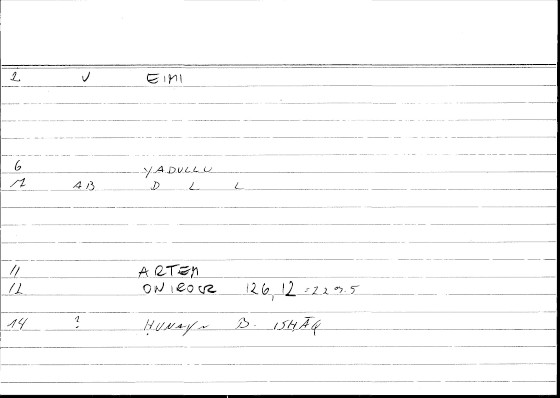 2 V EIMI
6 YADULLU
7 AB D L L
11 ARTEM
12 ONIROCR 126,12 = 229.5
14 ? ḤUNAYN B. ISḤĀQ